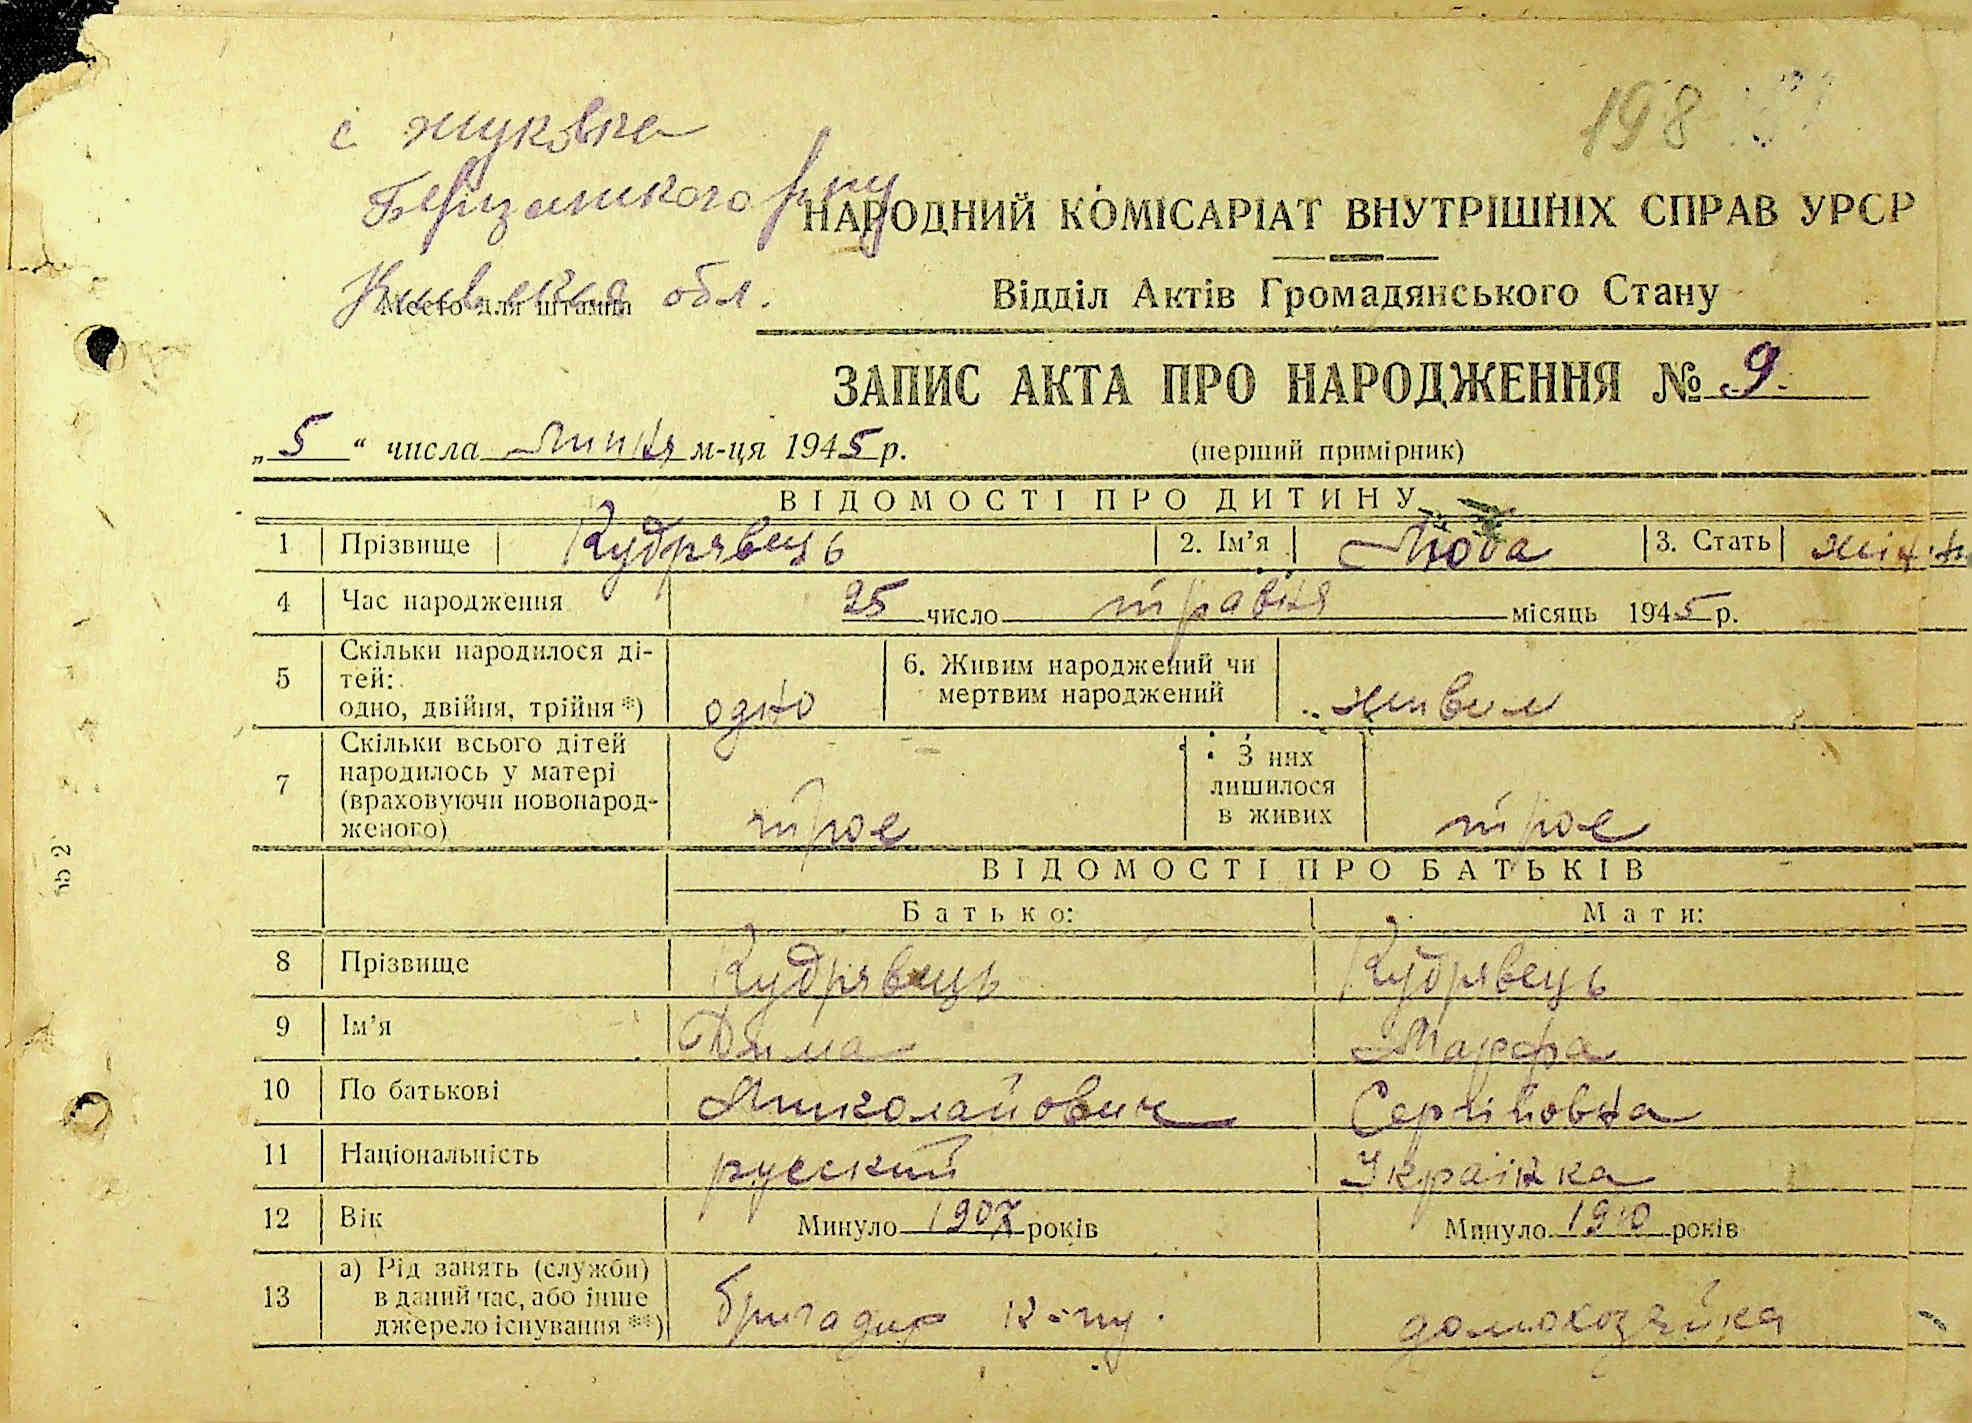 198
с Жуковка
Березанського р-ну
Київська обл.
НАРОДНИЙ КОМІСАРІАТ ВНУТРІШНІХ СПРАВ УРСР
Место для штампа
Відділ Актів Громадянського Стану
ЗАПИС АКТА ПРО НАРОДЖЕННЯ № 9.
„5“ числа Липня м-ця 1945 р. (перший примірник)
ВІДОМОСТІ ПРО ДИТИНУ
1 Прізвище Кудрявець 2. Ім'я Люба 3. Стать
4 Час народження 25 число травня місяць 1945 р.
5 Скільки народилося ді-
тей:
одно, двійня, трійня *) одно
6. Живим народжений чи
мертвим народжений живим
7 Скільки всього дітей
народилось у матері
(враховуючи новонарод-
женого) троє
З них
лишилося
в живих троє
ВІДОМОСТІ ПРО БАТЬКІВ
Батько: Мати:
8 Прізвище Кудрявець Кудрявець
9 Ім'я Дима Марфа
10 По батькові Миколайович Сергіївна
11 Національність русский Українка
12 Вік Минуло 1907 років Минуло 1910 років
13 а) Рід занять (служби)
в даний час, або інше
джерело існування **) бригадир домохозяйка